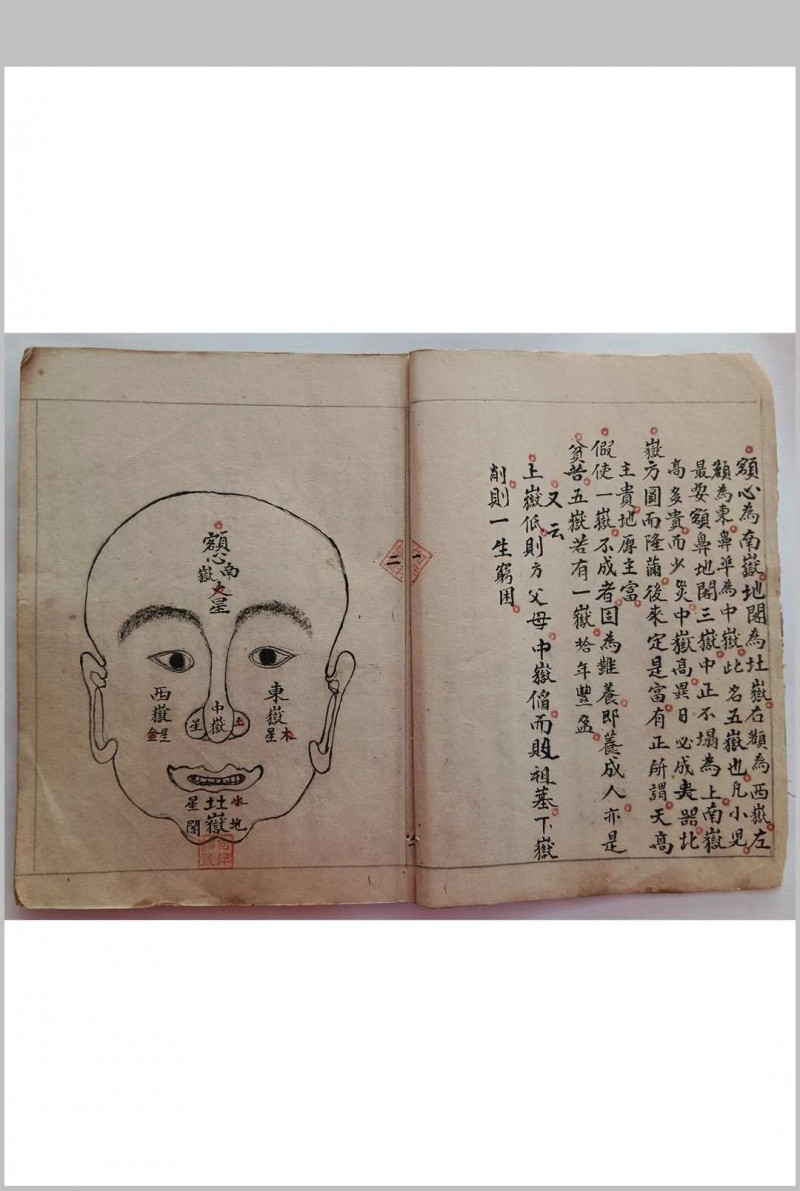 額心為南嶽地閣為北嶽右顴為西嶽左
顴為東鼻準為中嶽此名五嶽也凡小児
最要額鼻地閣三嶽中正不塌為上南嶽
高多貴而少災中嶽高異日必成夷器北
嶽方圓而隆蒲後來定是富有正所謂天高
主貴地厚主富
假使一嶽不成者因為難養即養成人亦是
貧苦五嶽若有一嶽拾年豐盈
又云
上嶽低則方父母中嶽偏而敗祖墓下嶽
削則一生窮困
一
二
額心
南嶽
火星
東嶽
木星
西嶽
金星
中嶽
土星
北嶽
水星
地閣